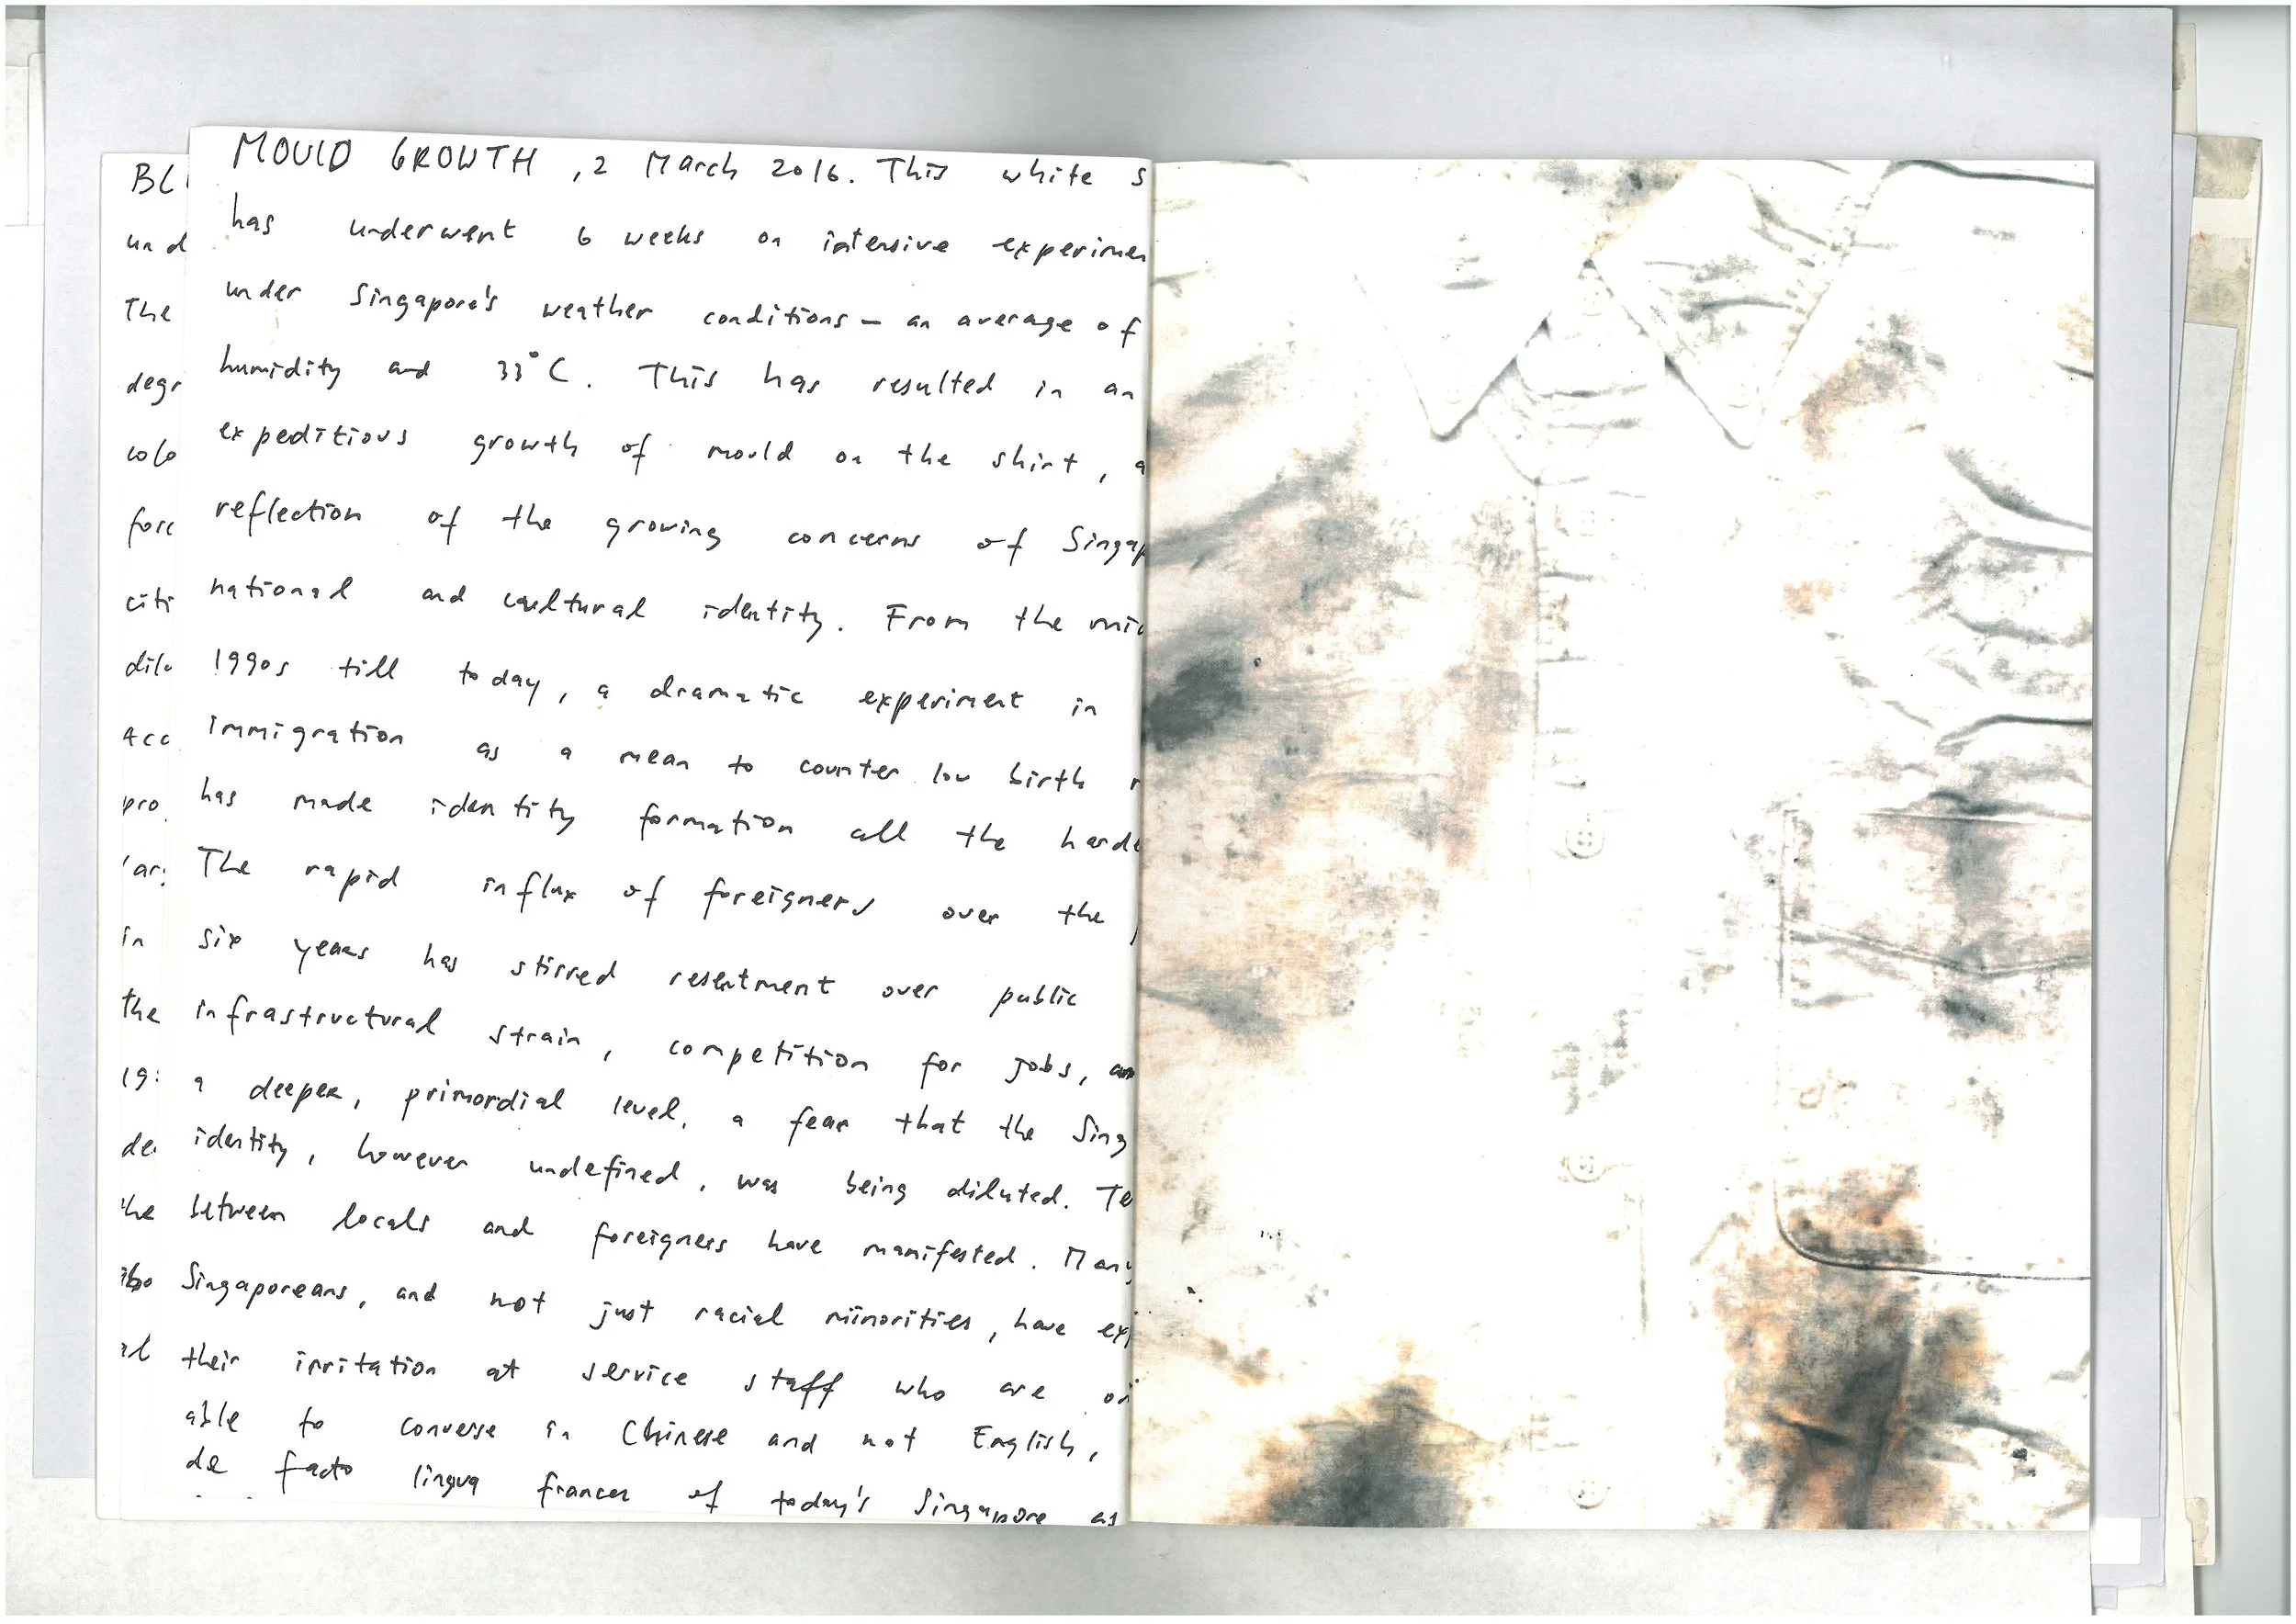 MOULD GROWTH, 2 March 2016. This white s
has underwent 6 weeks on intensive experimen
under Singapore's weather conditions — an average of
humidity and 33°C. This has resulted in an
expeditious growth of mould on the shirt, a
reflection of the growing concerns of Singap
national and cultural identity. From the mid
1990s till today, a dramatic experiment in
immigration as a mean to counter low birth r
has made identity formation all the harde
The rapid influx of foreigners over the p
six years has stirred resentment over public
infrastructural strain, competition for jobs, an
a deeper, primordial level, a fear that the Sing
identity, however undefined, was being diluted. Te
between locals and foreigners have manifested. Many
Singaporeans, and not just racial minorities, have exp
their irritation at service staff who are on
able to converse in Chinese and not English,
de facto lingua franca of today's Singapore as
BL
und
The
degr
colo
forc
citi
dilu
Acc
pro
lar
in
the
19
de
the
al